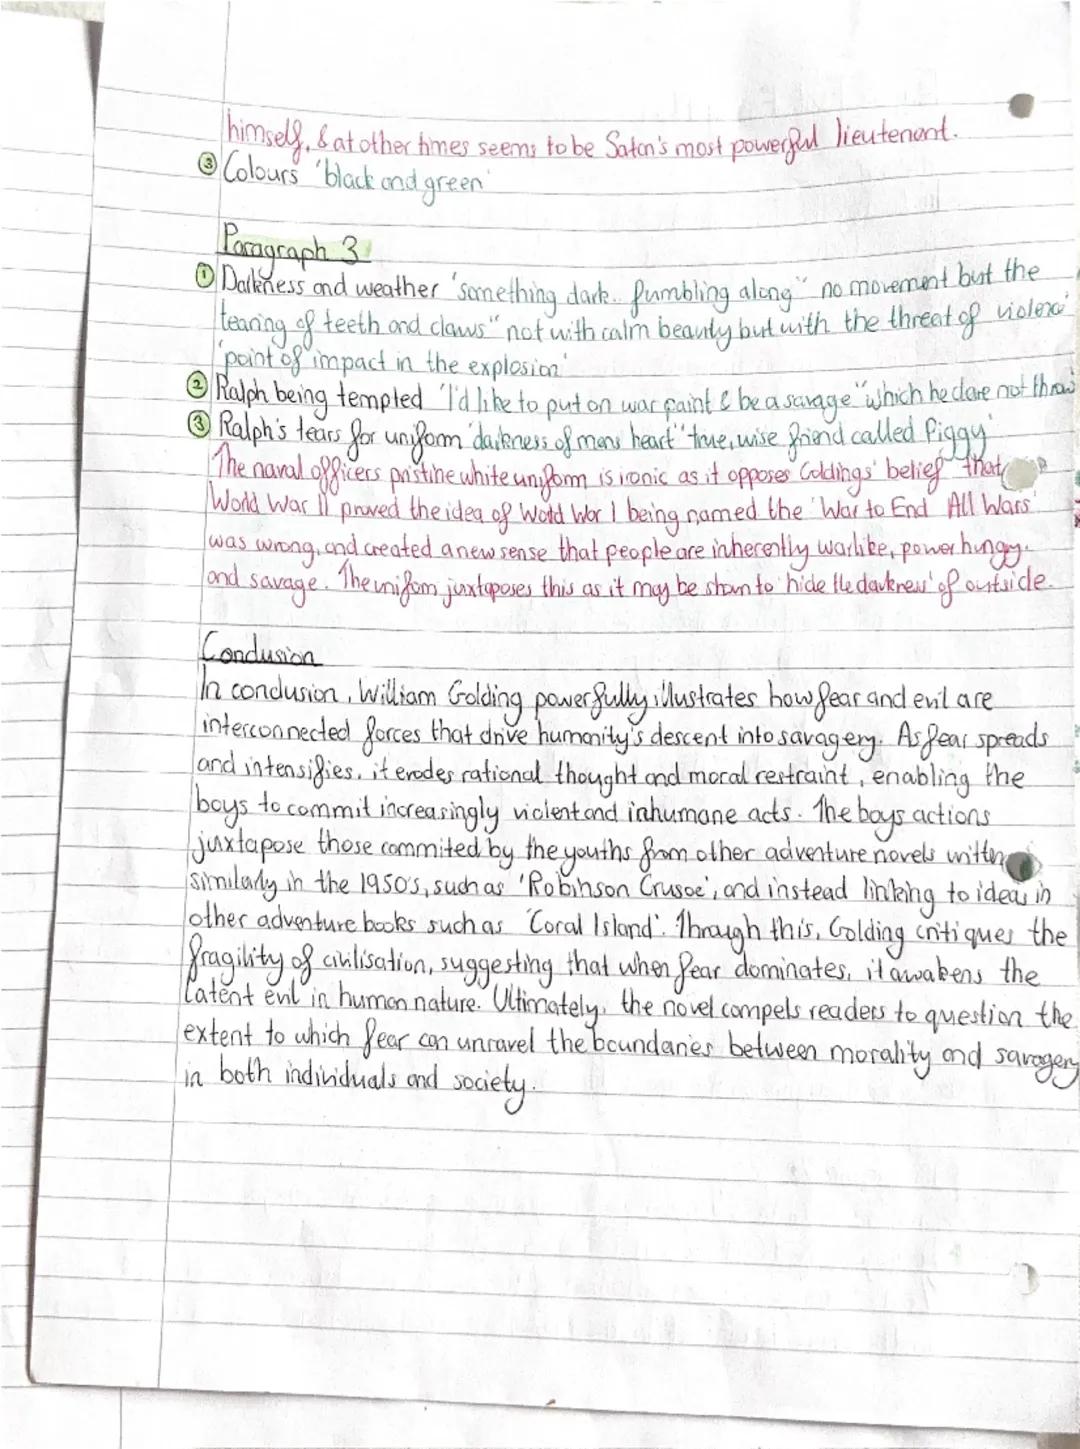 himself, & at other times seems to be Satan's most powerful lieutenant.
③ Colours 'black and green'
Paragraph 3
① Darkness and weather 'something dark.. fumbling along" no movement but the
tearing of teeth and claws" not with calm beauty but with the threat of violence'
'point of impact in the explosion'
② Ralph being tempted 'I'd like to put on war paint & be a savage" which he dare not throw
③ Ralph's tears for uniform 'darkness of mans heart" true, wise friend called Piggy'
The naval officers pristine white uniform is ironic as it opposes Goldings' belief that
World War II proved the idea of World War I being named the 'War to End All Wars'
was wrong, and created a new sense that people are inherently warlike, power hungry.
and savage. The uniform juxtaposes this as it may be shown to 'hide the darkness' of outside.
Conclusion
In conclusion, William Golding powerfully illustrates how fear and evil are
interconnected forces that drive humanity's descent into savagery. As fear spreads
and intensifies, it erodes rational thought and moral restraint, enabling the
boys to commit increasingly violent and inhumane acts. The boys actions
juxtapose those commited by the youths from other adventure novels written
similarly in the 1950's, such as 'Robinson Crusoe', and instead linking to ideas in
other adventure books such as 'Coral Island'. Through this, Golding critiques the
fragility of civilisation, suggesting that when fear dominates, it awakens the
latent evil in human nature. Ultimately, the novel compels readers to question the
extent to which fear can unravel the boundaries between morality and savagery
in both individuals and society.